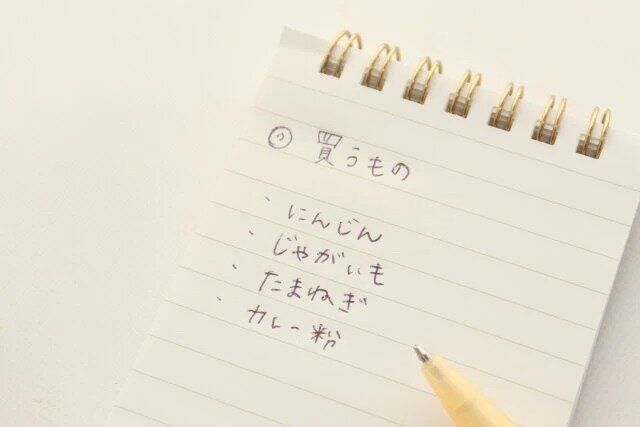 ◎ 買うもの
・にんじん
・じゃがいも
・たまねぎ
・カレー粉